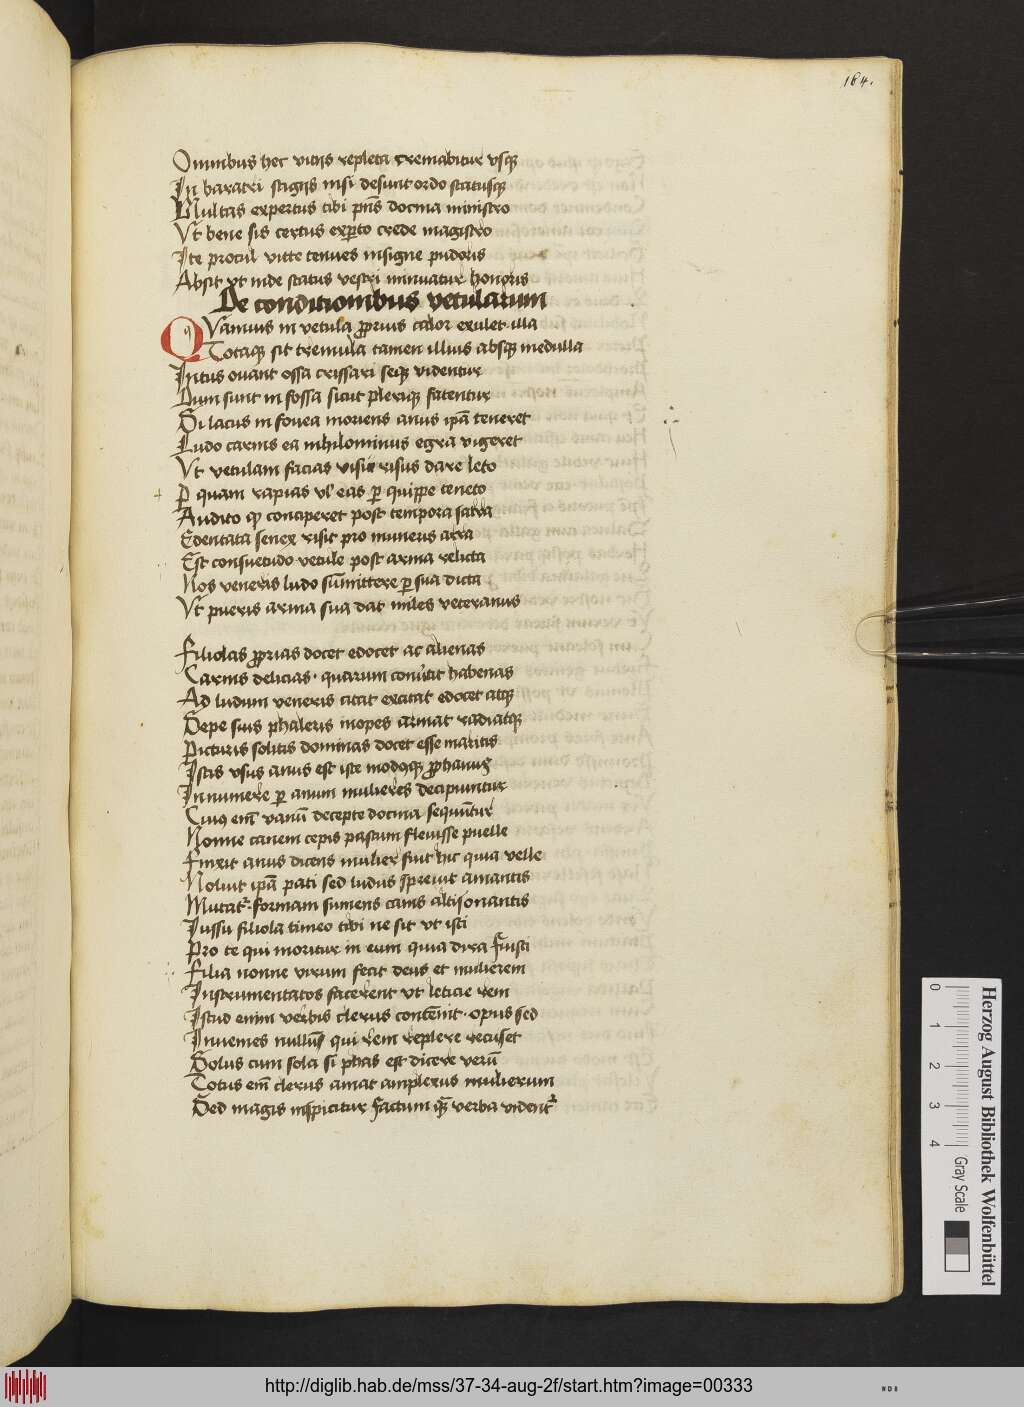 164.
Omnibus hec vitijs repleta cremabitur vsqꝫ
In baratri stagijs nisi desunt ordo statusqꝫ
Multas expertus tibi pn̄s docma ministro
Vt bene sis certus exꝑto crede magistro
Ite procul vitte tenues insigne pudoris
Absit vt inde status vestri minuatur honoris
De conditionibus vetularum
QVamuis in vetula ꝓprius calor exulet illa
Totaqꝫ sit tremula tamen illius absqꝫ medulla
Intus ouant ossa crissari seqꝫ videntur
Dum sunt in fossa sicut pleriqꝫ fatentur
Si lacus in fouea moriens anus ip̄a teneret
Ludo carnis ea nihilominus egra vigeret
Vt vetulam facias risus dare leto
ꝑ quam rapias vl' eas ꝑ quippe teneto
Audito ꝙ conciperet post tempora satra
Edentata senex risit pro muneris arra
Est consuetudo vetule post arma relicta
Nos veneris ludo sūmittere ꝑ sua dicta
Vt pueris arma sua dat miles veteranus
Filiolas ꝓprias docet edocet ac alienas
Carnis delicias · quarum conūtit habenas
Ad ludum veneris citat excitat edocet atqꝫ
Sepe suis phaleris inopes armat radiatqꝫ
Picturis solitis dominas docet esse maritis
Istis vsus anus est iste modꝰqꝫ ꝓphanꝰ
Innumere ꝑ anum mulieres decipiuntur
Cuiꝰ em̄ vanū decepte docma sequūtur
Nonne canem cepis pastum fleuisse puelle
Finxit anus dicens mulier fuit hic quia velle
Noluit ip̄a pati sed ludus spreuit amantis
Mutat᷑ · formam sumens canis altisonantis
Iussu filiola timeo tibi ne sit vt isti
Pro te qui moritur in eum quia dira fuisti
Filia nonne virum fecit deus et mulierem
Instrumentatos facerent vt leticie rem
Istud enim verbis clerus contēnit · opus sed
Inuenies nullus qui rem replere recuset
Solus cum sola si phas est dicere verū
Totus em̄ clerus amat amplexus mulierum
Sed magis inspicitur factum qꝫ̄ verba vident᷑
0 1 2 3 4
Gray Scale
Herzog August Bibliothek Wolfenbüttel
http://diglib.hab.de/mss/37-34-aug-2f/start.htm?image=00333